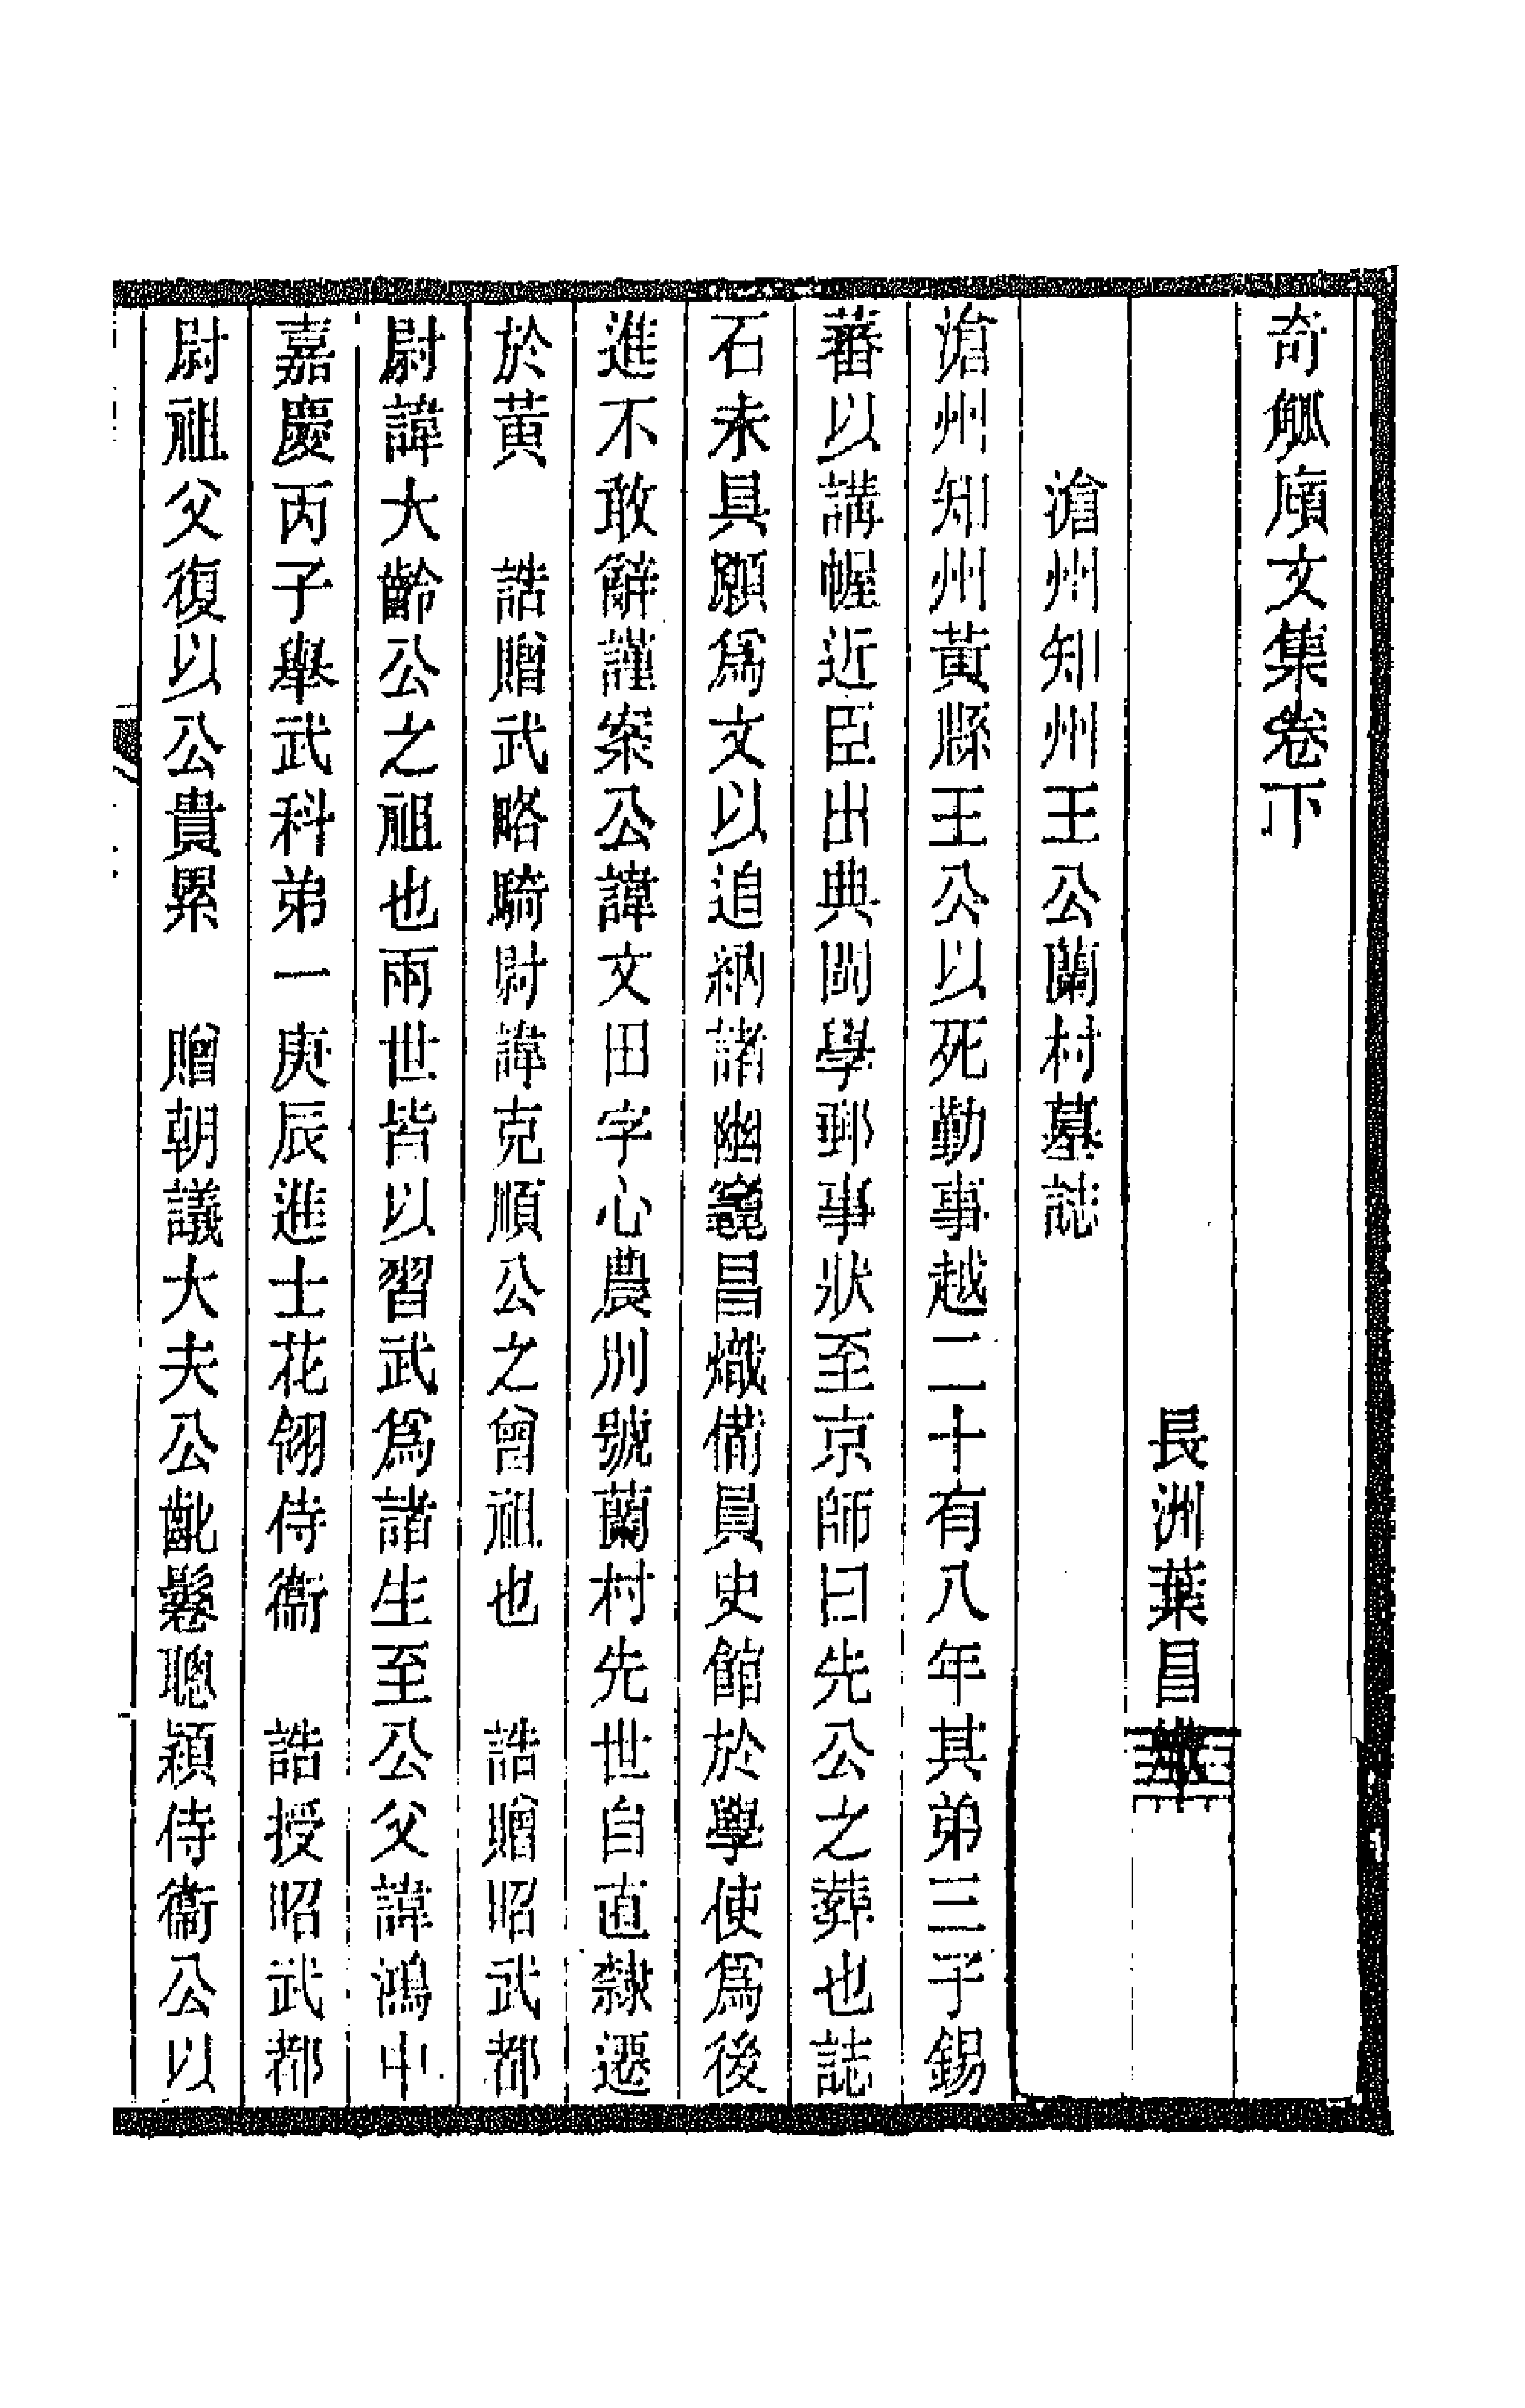 奇觚廎文集卷下
長洲葉昌熾
滄州知州王公蘭村墓誌
滄州知州黃縣王公以死勤事越二十有八年其弟三子錫
蕃以講幄近臣出典閩學郵事狀至京師曰先公之葬也誌
石未具願爲文以追納諸幽竁昌熾備員史館於學使爲後
進不敢辭謹案公諱文田字心農別號蘭村先世自直隸遷
於黃 誥贈武略騎尉諱克順公之曾祖也 誥贈昭武都
尉諱大齡公之祖也兩世皆以習武爲諸生至公父諱鴻中
嘉慶丙子舉武科弟一庚辰進士花翎侍衞 誥授昭武都
尉祖父復以公貴累 贈朝議大夫公齔鬈聰穎侍衞公以